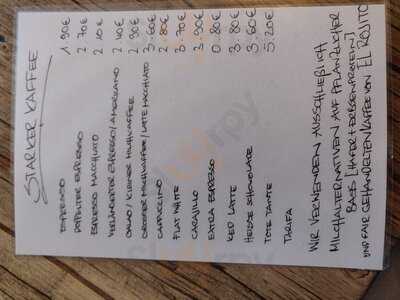 STARKER KAFFEE
ESPRESSO 1.90€
DOPPELTER ESPRESSO 2.70€
ESPRESSO MACCHIATO 2.10€
VERLÄNGERTER ESPRESSO/AMERICANO 2.40€
CAFFEE/KLEINER MILCHKAFFEE 2.90€
GROSSER MILCHKAFFEE/LATTE MACCHIATO 3.60€
CAPPUCCINO 2.80€
FLAT WHITE 3.70€
CARAJILLO 3.90€
EXTRA ESPRESSO 0.80€
ICED LATTE 3.80€
HEISSE SCHOKOLADE 3.60€
TOTE TANTE 5.20€
TARIFA
WIR VERWENDEN AUSSCHLIEßLICH
MILCHALTERNATIVEN AUF PFLANZLICHER
BASIS [HAFER + ERBSENPROTEIN]
UND FAIR GEHANDELTEN KAFFEE VON EL ROJITO